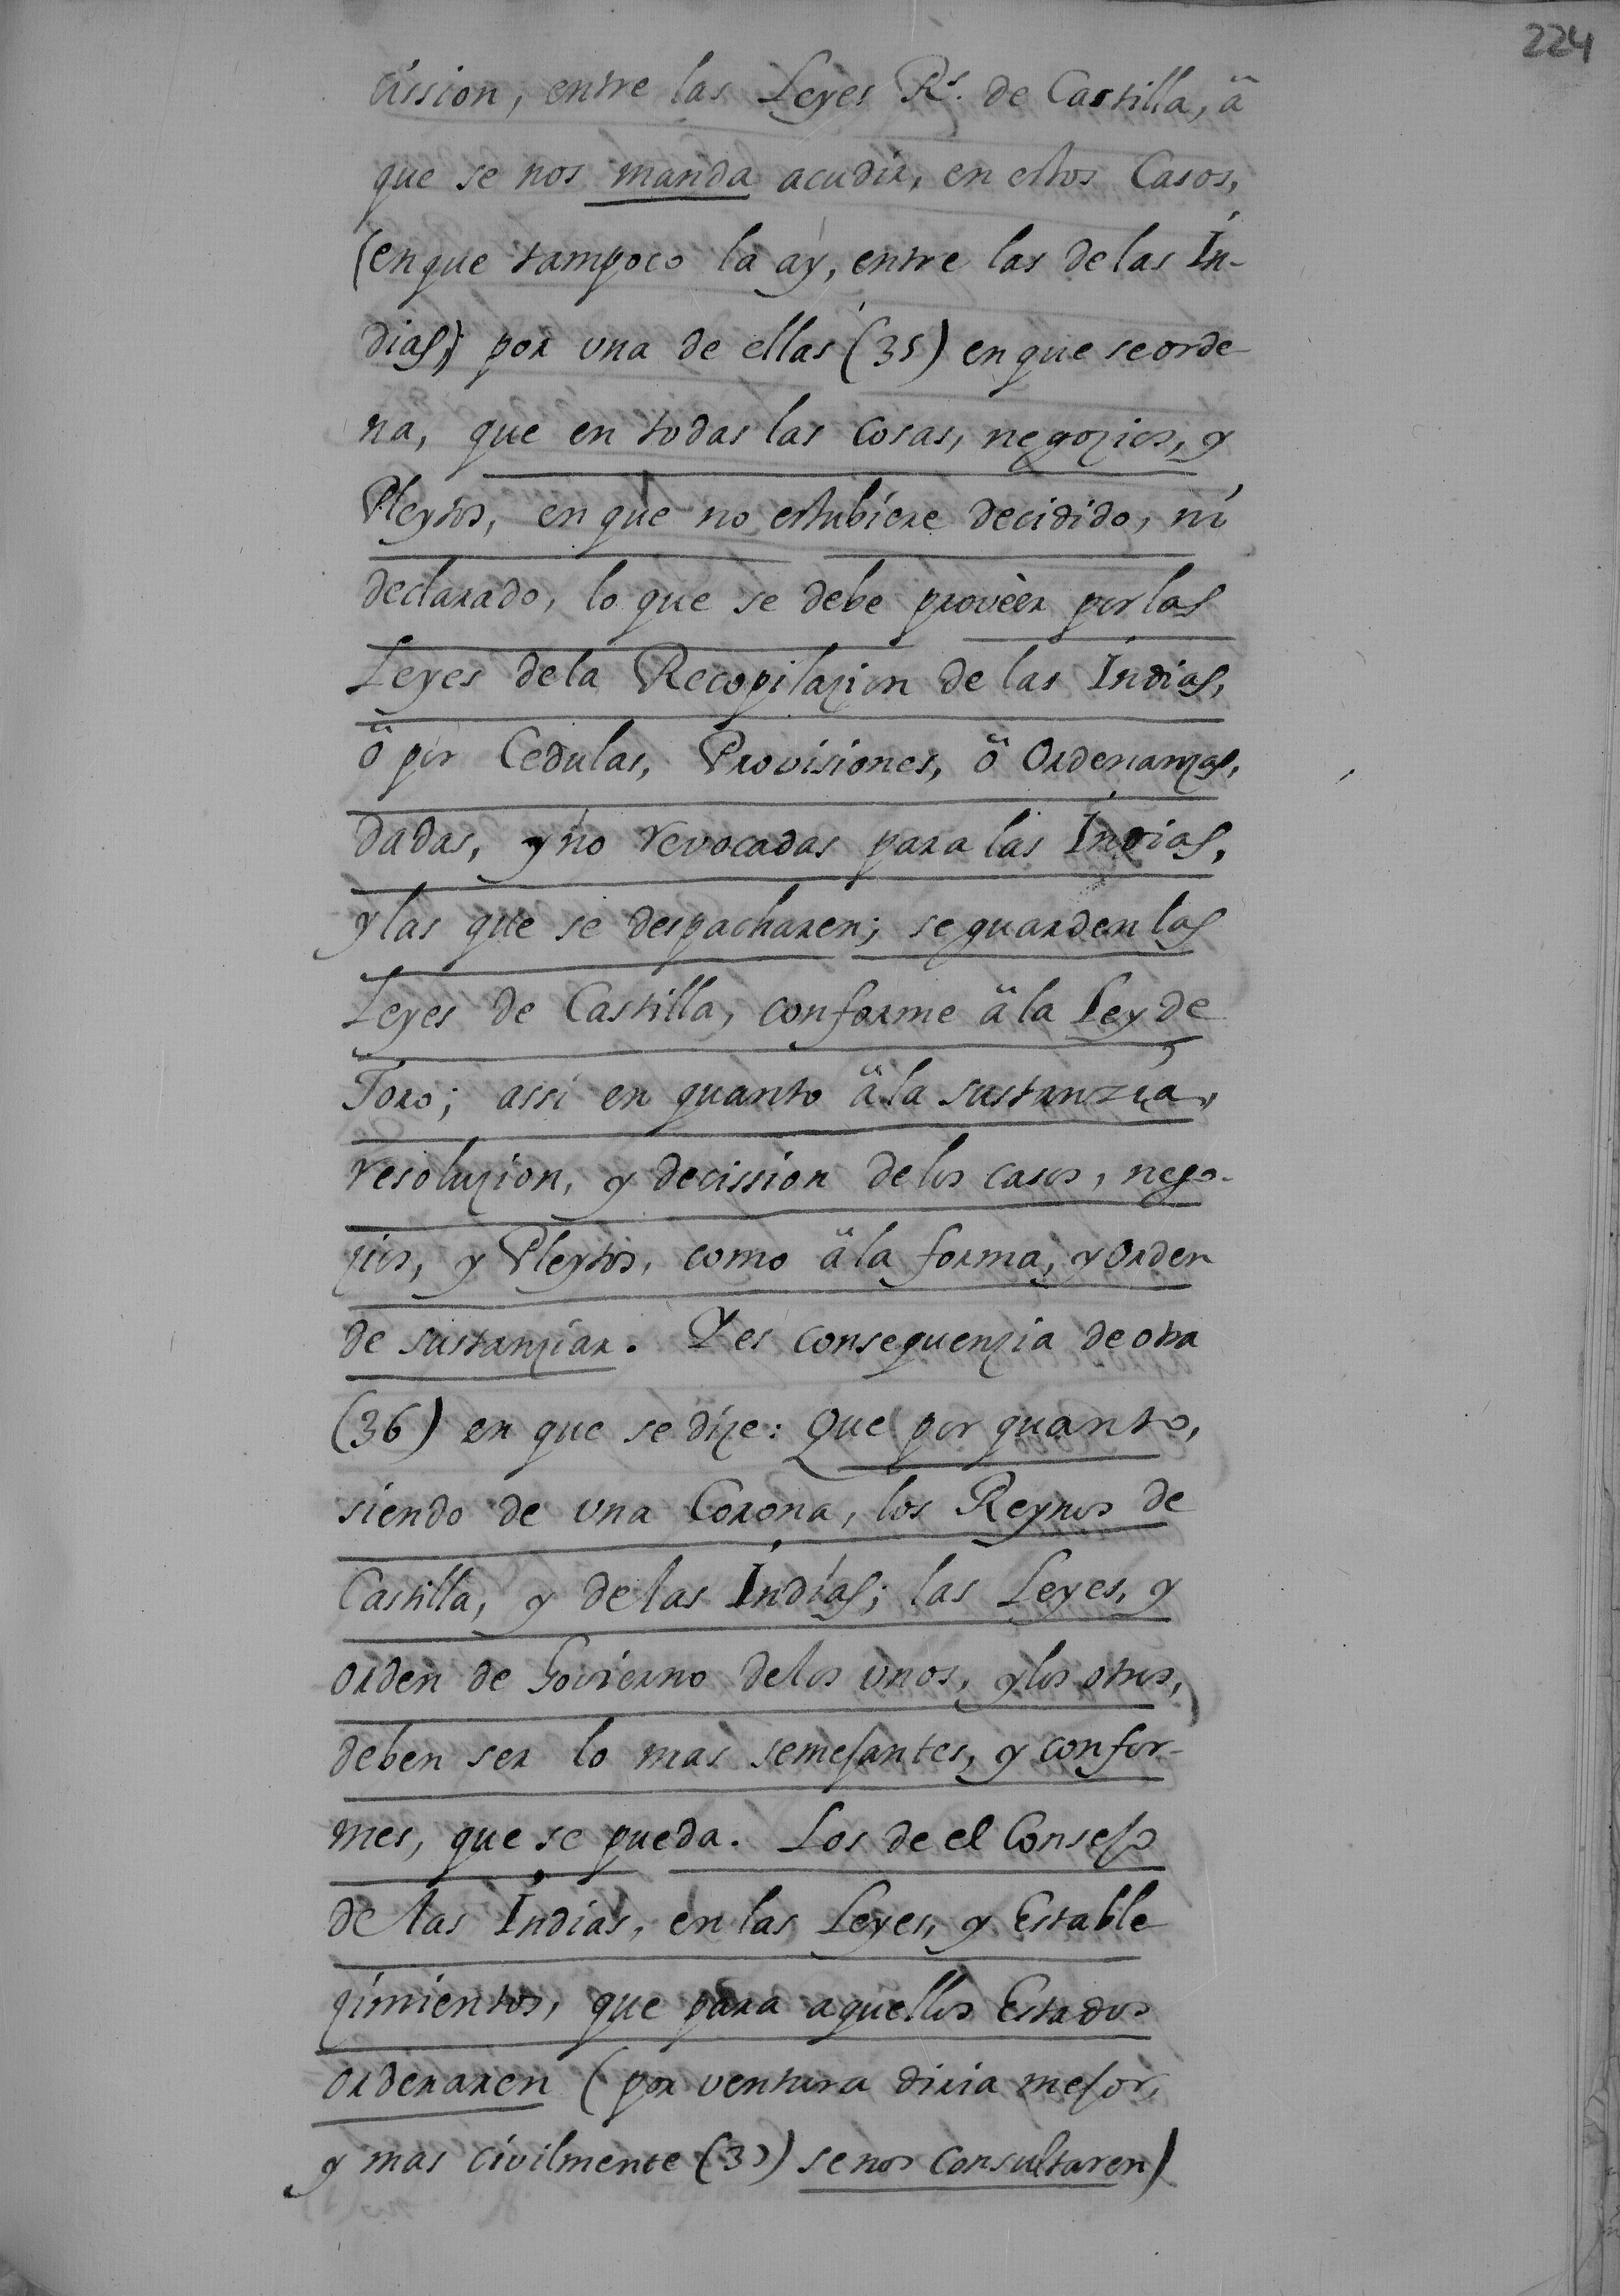 224
cission, entre las Leyes R.s de Castilla, â
que se nos manda acudir, en estos Casos,
(en que tampoco la ay, entre las de las In-
dias,) por una de ellas (35) en que se orde
na, que en todas las cosas, negozios, y
Pleytos, en que no estubiere decidido, ni
declarado, lo que se debe provèer por las
Leyes de la Recopilazion de las Indias,
ô por Cedulas, Provisiones, ô Ordenanzas,
dadas, y no revocadas para las Indias,
y las que se despacharen; se guarden las
Leyes de Castilla, conforme â la Ley de
Toro; assi en quanto â la sustanzia,
resoluzion, y decission de los casos, nego-
zios, y Pleytos, como â la forma, y Orden
de sustanziar. Y es consequenzia de otra
(36) en que se dize: Que por quanto,
siendo de una Corona, los Reynos de
Castilla, y de las Indias; las Leyes, y
Orden de Govierno de los unos, y los otros,
deben ser lo mas semejantes, y confor-
mes, que se pueda. Los de el Consejo
de las Indias, en las Leyes, y Estable
zimientos, que para aquellos Estados
Ordenaren (por ventura diria mejor,
y mas civilmente (37) se nos Consultaren)